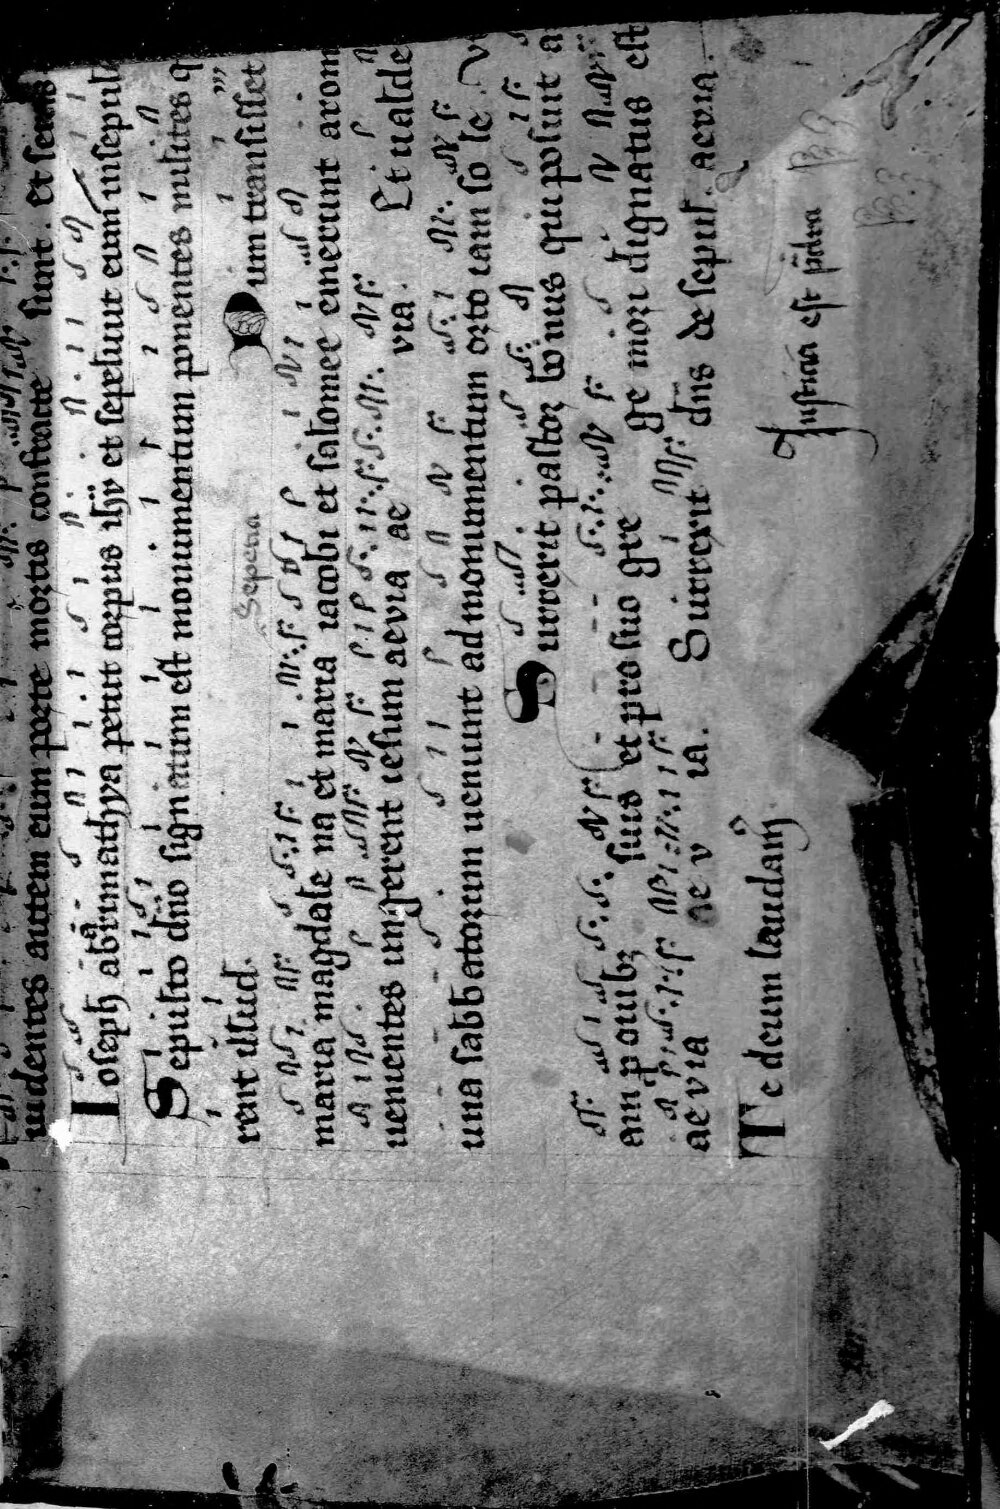 uidentes autem eum petre mortis constracte sunt. et seruis
Ioseph abarimathya petiit corpus ihu et sepeliuit eum insepul
Sepulto dno signatum est monumentum ponentes milites q
rent illud. Dum transisset
Sepetia
maria magdale na et maria iacobi et salomee emerunt arom
uenientes ungerent iesum aevia ae via. Et ualde
una sabbatorum ueniunt ad monumentum orto iam so le
Surrexit pastor bonus qui posuit a
am p ouibz suis et pro suo gre ge mori dignatus est
aevia ae v ia. Surrexit dns de sepul. aevia.
Te deum laudam
est